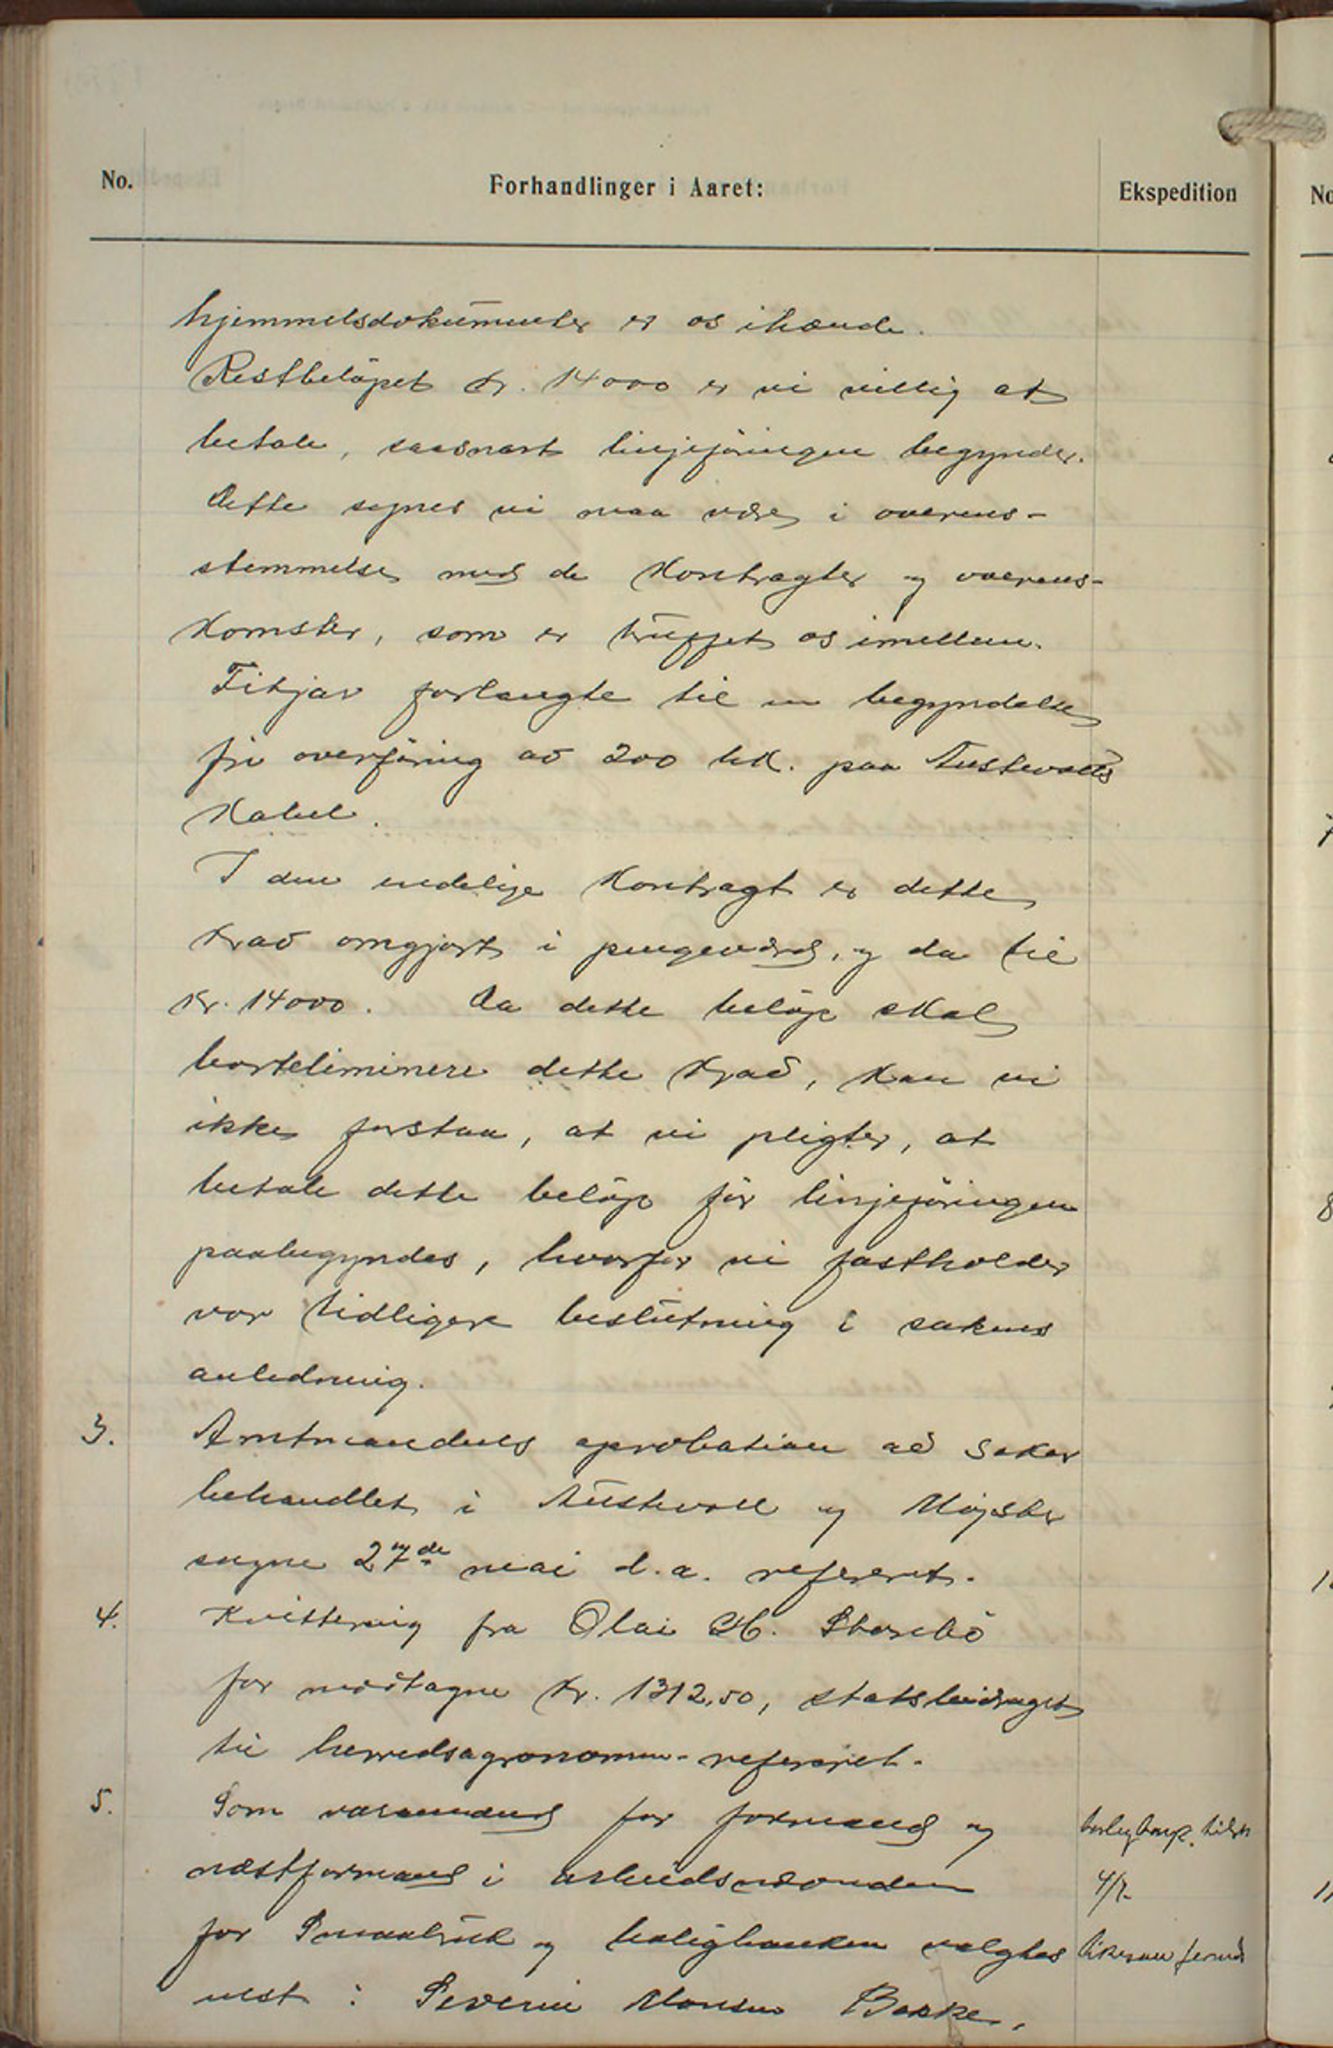 No.
Forhandlinger i Aaret:
Ekspedition
No
hjemmelsdokumenter er os ihænde.
Restbeløpet kr. 14000 er vi villig at
betale, saasnart linjeføringen begynder.
Dette synes vi maa være i overens-
stemmelse med de kontragter og overens-
komster, som er truffet os imellem.
Fitjar forlangte til en begyndelse
fri overføring av 200 hk. paa Austevolls
kabel.
I den endelige kontragt er dette
krav omgjort i pengeværd, og da til
kr. 14000. Da dette beløp skal
borteliminere dette krav, kan vi
ikke forstaa, at vi pligter, at
betale dette beløp før linjeføringen
paabegyndes, hvorfor vi fastholder
vor tidligere beslutning i sakens
anledning.
3. Amtmandens aprobation av saker
behandlet i Austevoll og Møgster
sogne 27de mai d.a. referert.
4. Kvittering fra Olai H. Storebø
for mottagne kr. 1312,50, statsbidraget
til herredsagronomen - referert.
5. Som varamænd for formand og
næstformand i arbeidsnævnden
for Smaabruk og boligbanken valgtes
enst: Severin Monsen Bakke.
4/7-
8